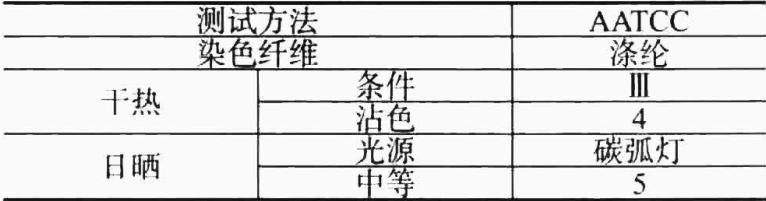 测试方法 AATCC
染色纤维 涤纶
干热 条件 Ⅲ
沾色 4
日晒 光源 碳弧灯
中等 5